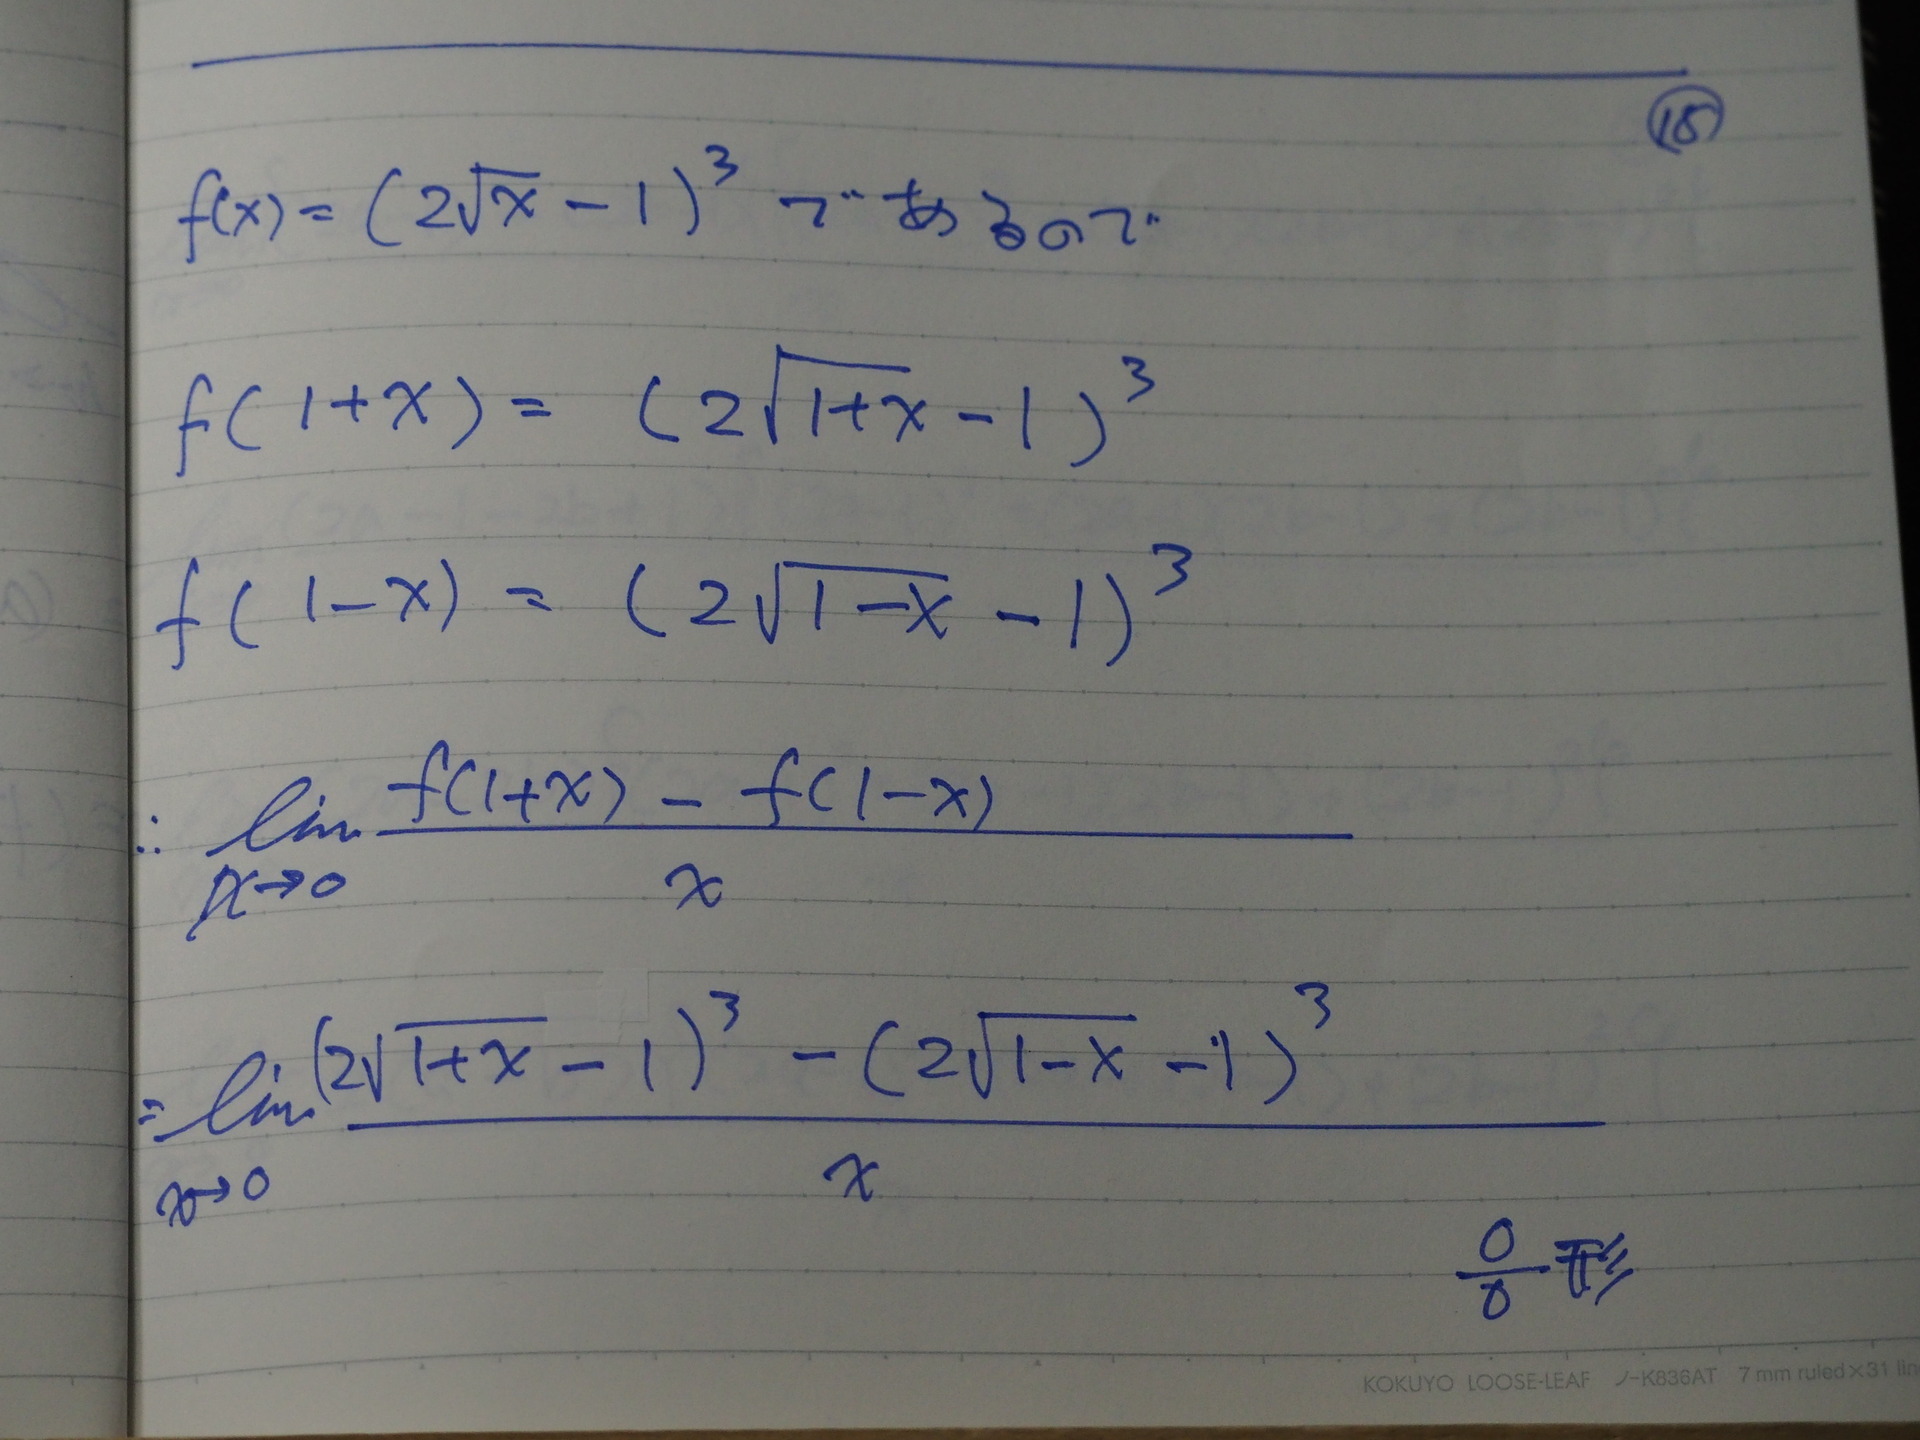 ⑱
f(x) = (2√x - 1)³ であるので
f(1+x) = (2√1+x - 1)³
f(1-x) = (2√1-x - 1)³
∴ lim x→0 f(1+x) - f(1-x) / x
= lim x→0 (2√1+x - 1)³ - (2√1-x - 1)³ / x
0/0 形
KOKUYO LOOSE-LEAF ノ-K836AT 7 mm ruled×31 lin